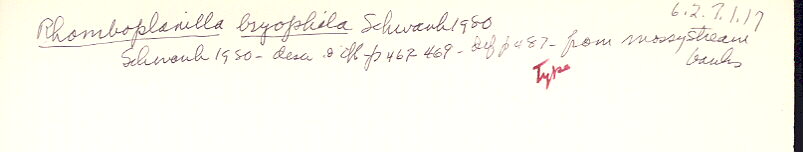 6.2.7.1.17
Rhomboplanilla bryophila Schwank 1980
Schwank 1980 - desc. & ill - p 467-469 - def p 487 - from mossy stream banks
Type